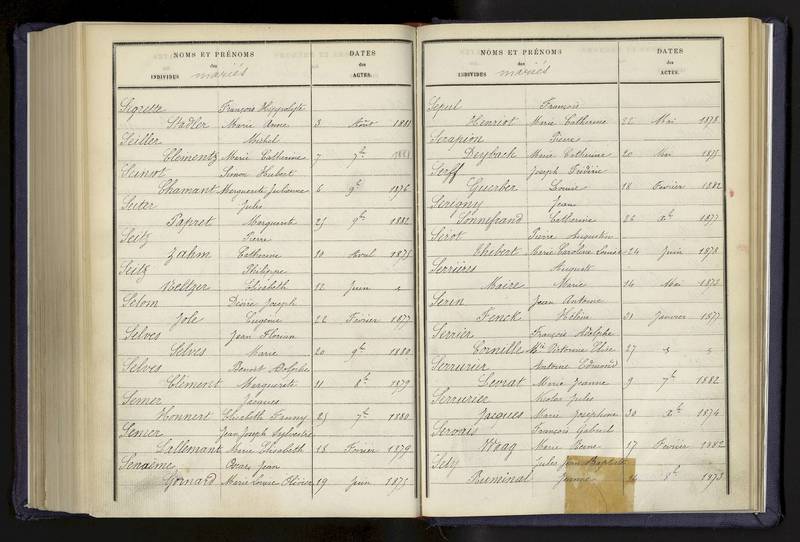 NOMS ET PRÉNOMS
DATES
des
des
INDIVIDUS mariés
ACTES.
François Hippolyte
Stadler Marie Anne 3 Août 1881
Seiller Michel
Clementz Marie Catherine 7 7bre
Simon Hubert
Chamant Marguerite Julienne 6 9bre 1876
Suter Jules
Papret Marguerite 25 9bre 1882
Seitz Pierre
Zahm Catherine 10 Avril 1875
Seitz Philippe
Weltzer Elisabeth 12 Juin
Selom Désiré Joseph
Jole Eugénie 22 Février 1877
Selves Jean Florian
Selves Marie 20 9bre 1880
Selves Benoit Dolphe
Clément Marguerite 11 8bre 1879
Semer Jacques
Honnert Elisabeth Fanny 25 7bre 1880
Senier Jean Joseph Sylvestre
Lallemant Marie Elisabeth 18 Février 1879
Jean
Gornard Marie Louise 19 Juin 1875
NOMS ET PRÉNOMS
DATES
des
des
INDIVIDUS mariés
ACTES.
Sepul François
Henriot Marie Catherine 22 Mai 1878
Serapion Pierre
Deyback Marie Catherine 20 Mai 1875
Serff Joseph Frédéric
Guerber Louise 18 Février 1882
Serigny Jean
Sonnefrand Catherine 26 Xbre 1877
Serot Pierre Augustin
Thebert Marie Caroline Louise 24 Juin 1878
Serrières Auguste
Maire Marie 14 Mai 1873
Serin Jean Antoine
Fenck Hélène 31 Janvier 1877
Serrier François Adolphe
Cornille Mie Victorine Elise 27
Serrurier Antoine Edmond
Levrat Marie Jeanne 9 7bre 1882
Serrurier Nicolas Jules
Jacques Marie Joséphine 30 Xbre 1874
Servais François Gabriel
Waag Marie Reine 17 Février 1882
Jules Jean Baptiste
Ruminal Jeanne 24 8bre 1873